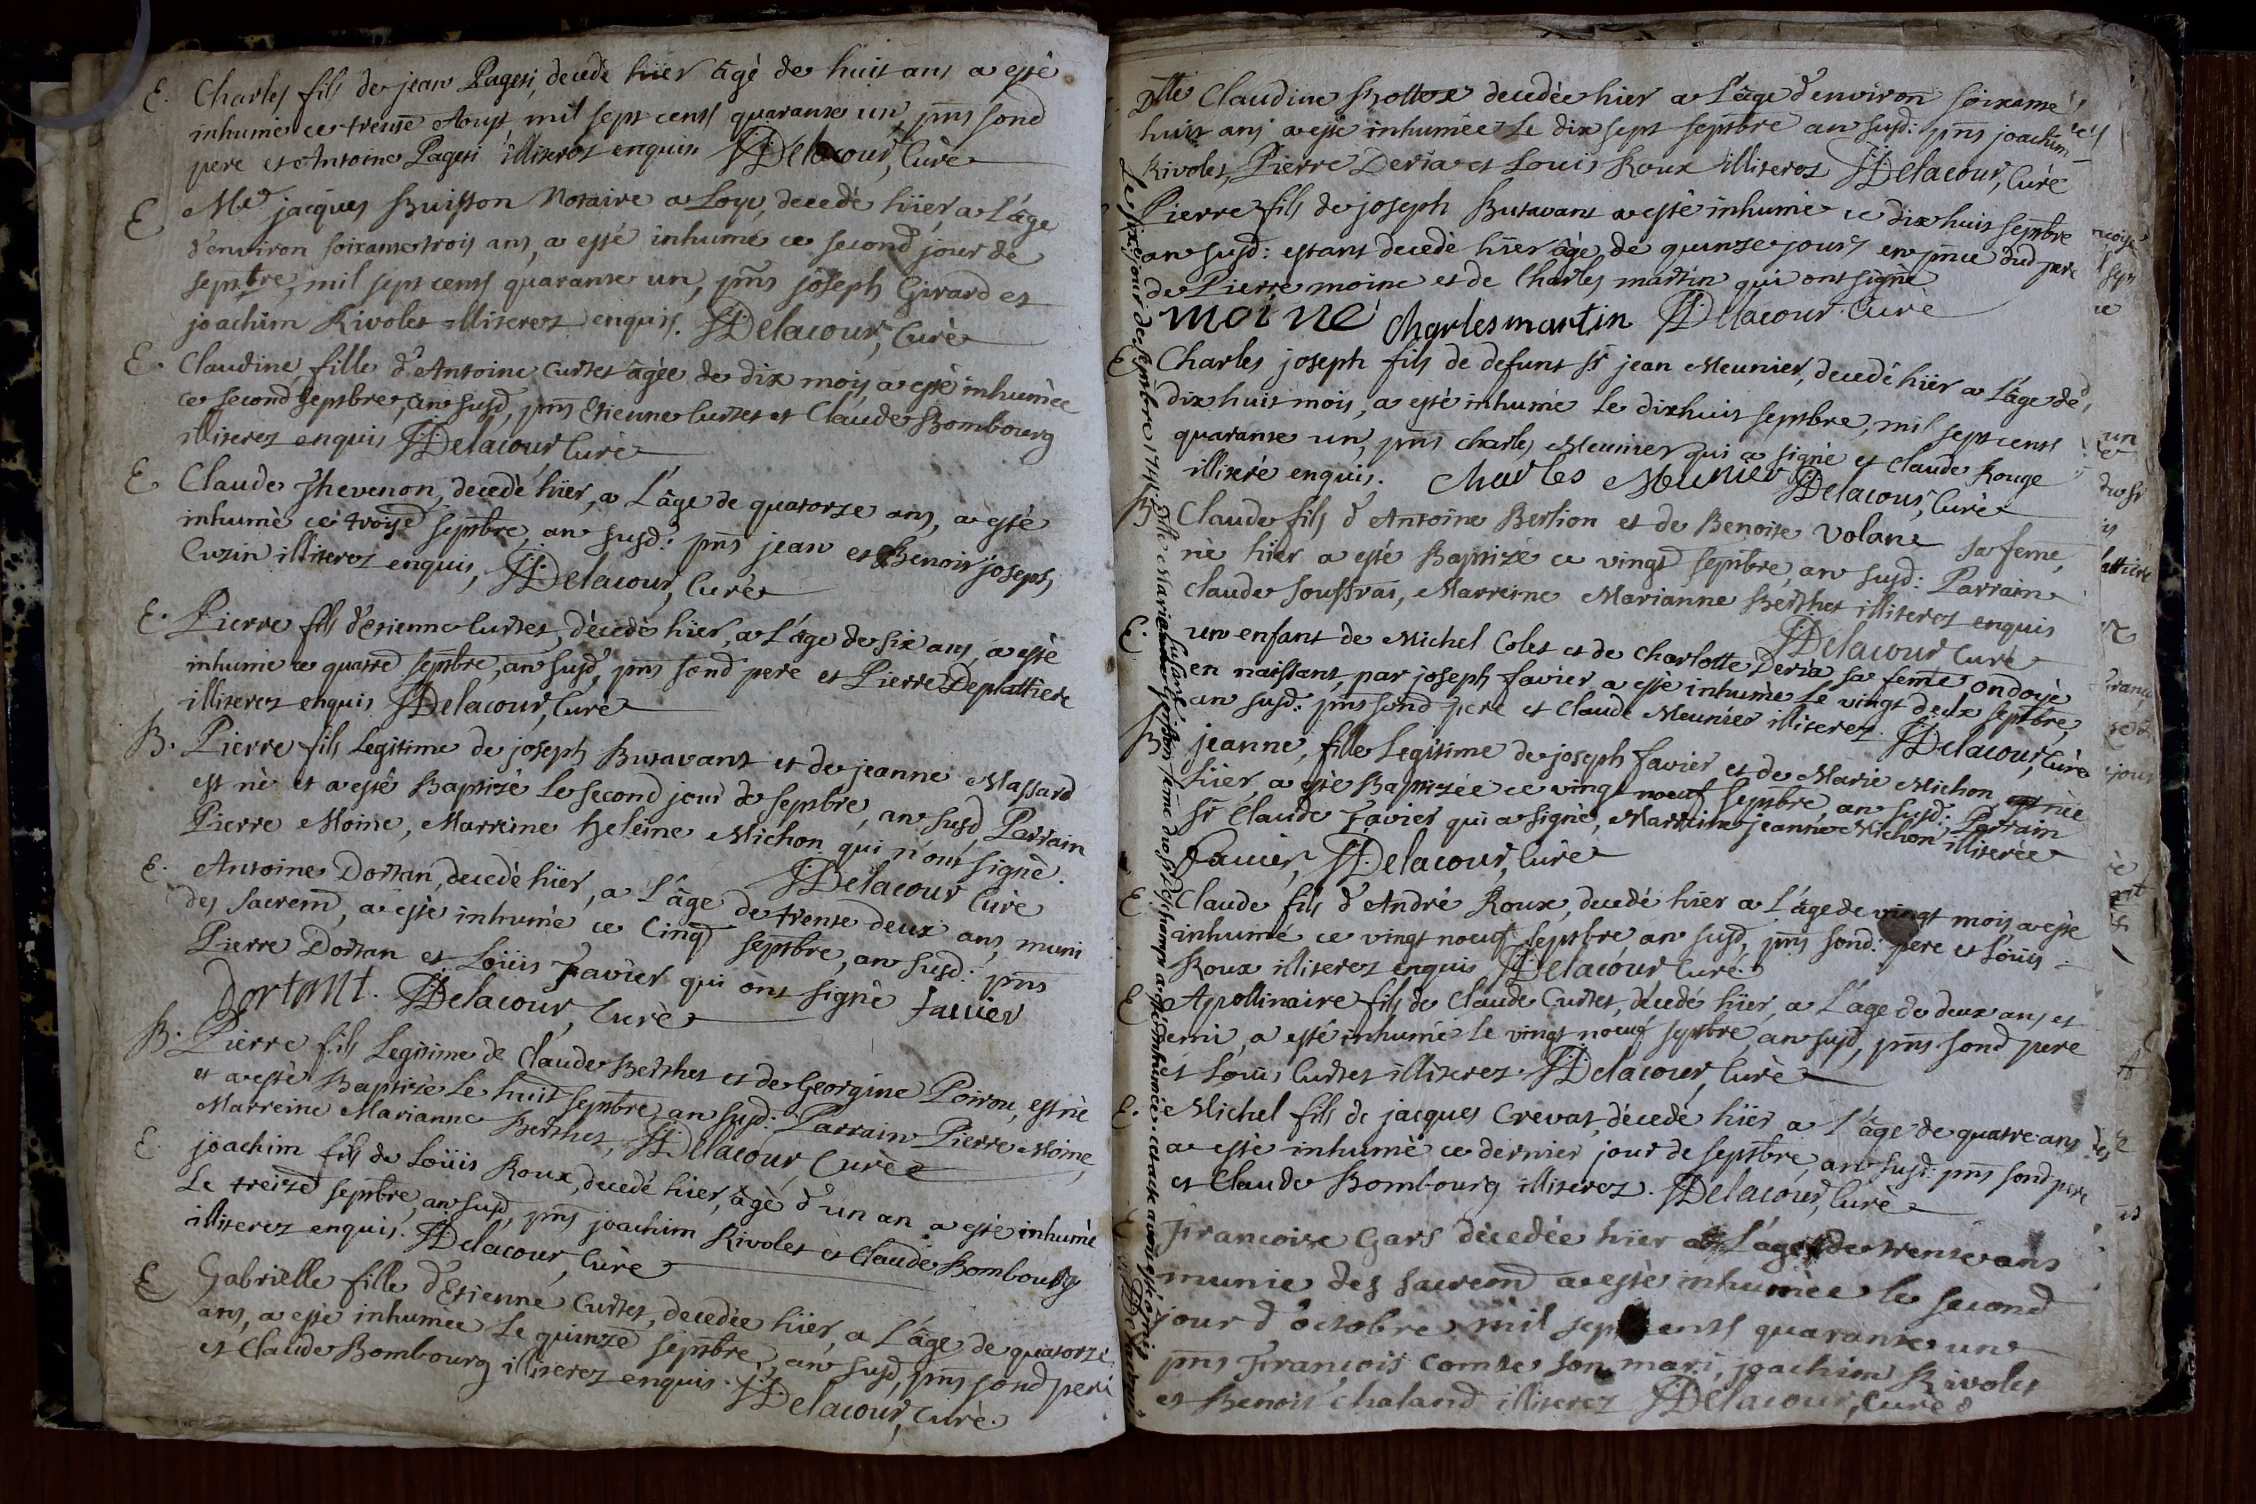 E. Charles fils de jean Pageri, decedé hïer âgé de huit ans a esté
inhumé ce treusie Aoust mil sept cents quarante un, pnts sond
pere et Antoine Pageri illiterez enquis JJDelacour, Curé
E Me jacques Buisson Notaire a Loye, decedé hïer a L'âge
d'environ soixante trois ans, a esté inhumé ce second jour de
septbre, mil sept cents quarante un, pnts joseph Girard et
joachim Rivolet illiterez enquis. JJDelacour, Curé
E. Claudine fille d'Antoine Curtet âgée de dix mois, a esté inhumée
ce second septbre, an susd, pnts Etienne Curtet et Claude Bombourg
illiterez enquis JJDelacour Curé
E Claude Thevenon, decedé hïer, a L'âge de quatorze ans, a esté
inhumé ce troise septbre, an susd: pnts jean et Benoit joseph
Cusin illiterez enquis, JJDelacour, Curé
E. Pierre fils d'Etienne Curtet, décedé hïer, a L'âge de six ans, a esté
inhumé ce quatre septbre, an susd, pnts sond pere et Pierre Deplattiere
illiterez enquis JJDelacour, Curé
B. Pierre fils Legitime de joseph Butavant et de jeanne Massard
est né et a esté Baptizé Le second jour de septbre, an susd, Parrain
Pierre Moine, Marreine heleine Michon qui n'ont signé.
JJDelacour Curé
E. Antoine Dortan, decedé hïer, a L'âge de trente deux ans, muni
des sacremd, a esté inhumé ce Cinqd septbre, an susd: pnts
Pierre Dortan et Loüis Favier qui ont signé favier
Dortant. JJDelacour, Curé
B. Pierre fils Legitime de Claude Berthet et de Georgine Poirou, est né
et a esté Baptizé Le huit septbre an susd: Parrain Pierre Moine,
Marreine Marianne Berthet, JJDelacour, Curé
E. joachim fils de Loüis Roux, decedé hïer, âgé d'un an a esté inhumé
Le treize septbre, an susd, pnts joachim Rivolet et Claude Bombourg
illiterez enquis. JJDelacour, Curé
E Gabrielle fille d'Etienne Curtet, decedée hïer, a L'âge de quatorze
ans, a esté inhumée Le quinze septbre, an susd, pnts sond pere
et Claude Bombourg illiterez enquis. JJDelacour, Curé.
Dlle Claudine Bottox decedée hier a L'âge d'environ soixante
huit ans a esté inhumée Le dix sept septbre an susd: pnts joachim
Rivolet, Pierre Deria et Louis Roux illiterez JJDelacour, Curé
Pierre fils de joseph Butavant a esté inhumé ce dix huit septbre
an susd: estant decedé hïer âgé de quinze jours en pnce dud pere
de Pierre moine et de Charles martin qui ont signé
moine Charles martin JJDelacour Curé
E Charles joseph fils de defunt sr jean Meunier, decedé hïer a L'âge de
dix huit mois, a esté inhumé Le dixhuit septbre, mil sept cents
quarante un, pnts charles Meunier qui a signé et Claude Rouge
illiteré enquis. Charles Meunier JJDelacour, Curé
B Claude fils d'Antoine Bertion et de Benoite Volant sa feme,
né hier a esté Baptizé ce vingt septbre, an susd: Parrain
Claude souffrai, Marreine Marianne Berthet illiterez enquis
JJDelacour Curé
E. un enfant de Michel Colet et de Charlotte Deria sa feme ondoyé
en naissant, par joseph favier a esté inhumé Le vingt deux septbre,
an susd: pnts sond pere et Claude Meunier illiterez. JJDelacour, Curé
B jeanne, fille Legitime de joseph favier et de Marie Michon née
hïer, a esté Baptizée ce vingt noeuf septbre, an susd: Parrain
sr Claude Favier qui a signé, Marreine jeanne Michon illiterée
favier, JJDelacour, Curé
E Claude fils d'André Roux, decedé hïer a L'âge de vingt mois, a esté
inhumé ce vingt noeuf septbre, an susd, pnts sond: pere et Loüis
Roux illiterez enquis JJDelacour Curé.
E Apollinaire fils de Claude Curtet, décedé hïer, a L'âge de deux ans et
demi, a esté inhumé Le vingt noeuf septbre, an susd, pnts sond pere
et Loüis Curtet illiterez. JJDelacour, Curé
E. Michel fils de jacques Crevat, décedé hïer a L'âge de quatre ans
a esté inhumé ce dernier jour de septbre, an susd: pnts sond pere
et Claude Bombourg illiterez. JJDelacour, Curé
E Francoise Gars décedée hïer L'âge de trente ans
munie des sacremd a esté inhumée le second
jour d'octobre mil sept cents quarante un
pnts François Comte son mari, joachim Rivolet
et Benoit Chaland illiterez JJDelacour, Curé
Le sixe jour de septbre 1741. Marie feme du sr Deschamps a esté inhumée. cet acte avoit esté omis